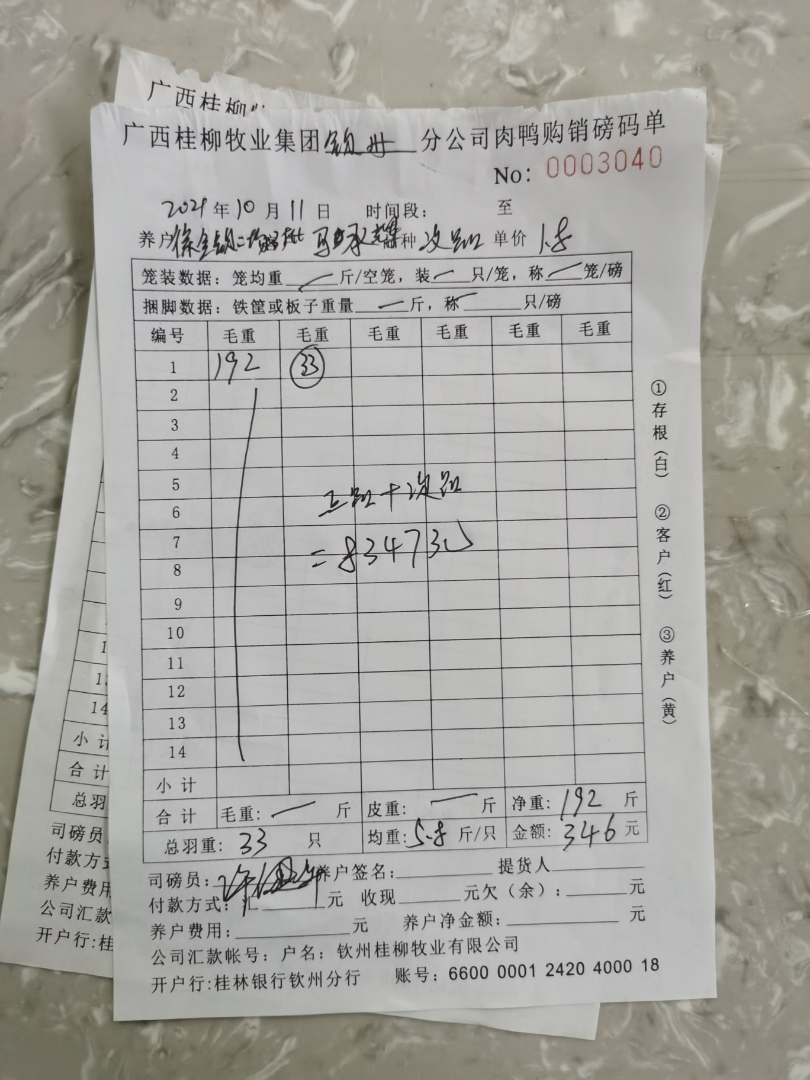 广西桂柳
广西桂柳牧业集团钦州分公司肉鸭购销磅码单
No: 0003040
2021年10月11日 时间段: 至
养户 种 次品 单价 1.8
笼装数据: 笼均重 斤/空笼, 装一只/笼, 称一笼/磅
捆脚数据: 铁筐或板子重量一斤, 称 只/磅
编号 毛重 毛重 毛重 毛重 毛重 毛重
1 192 33
2
3
4
5
正品+次品
6
7
=83473
8
9
10
11
12
13
14
小计
合计 毛重: 一 斤 皮重: 一 斤 净重: 192 斤
总羽重: 33 只 均重: 5.8 斤/只 金额: 346 元
司磅员: 养户签名: 提货人
付款方式: 汇 元 收现 元欠(余): 元
养户费用: 元 养户净金额: 元
公司汇款帐号: 户名: 钦州桂柳牧业有限公司
开户行:桂林银行钦州分行 账号: 6600 0001 2420 4000 18
①存根(白) ②客户(红) ③养户(黄)
14
小计
合计
总羽
司磅员
付款方式
养户费用
公司汇款
开户行:桂